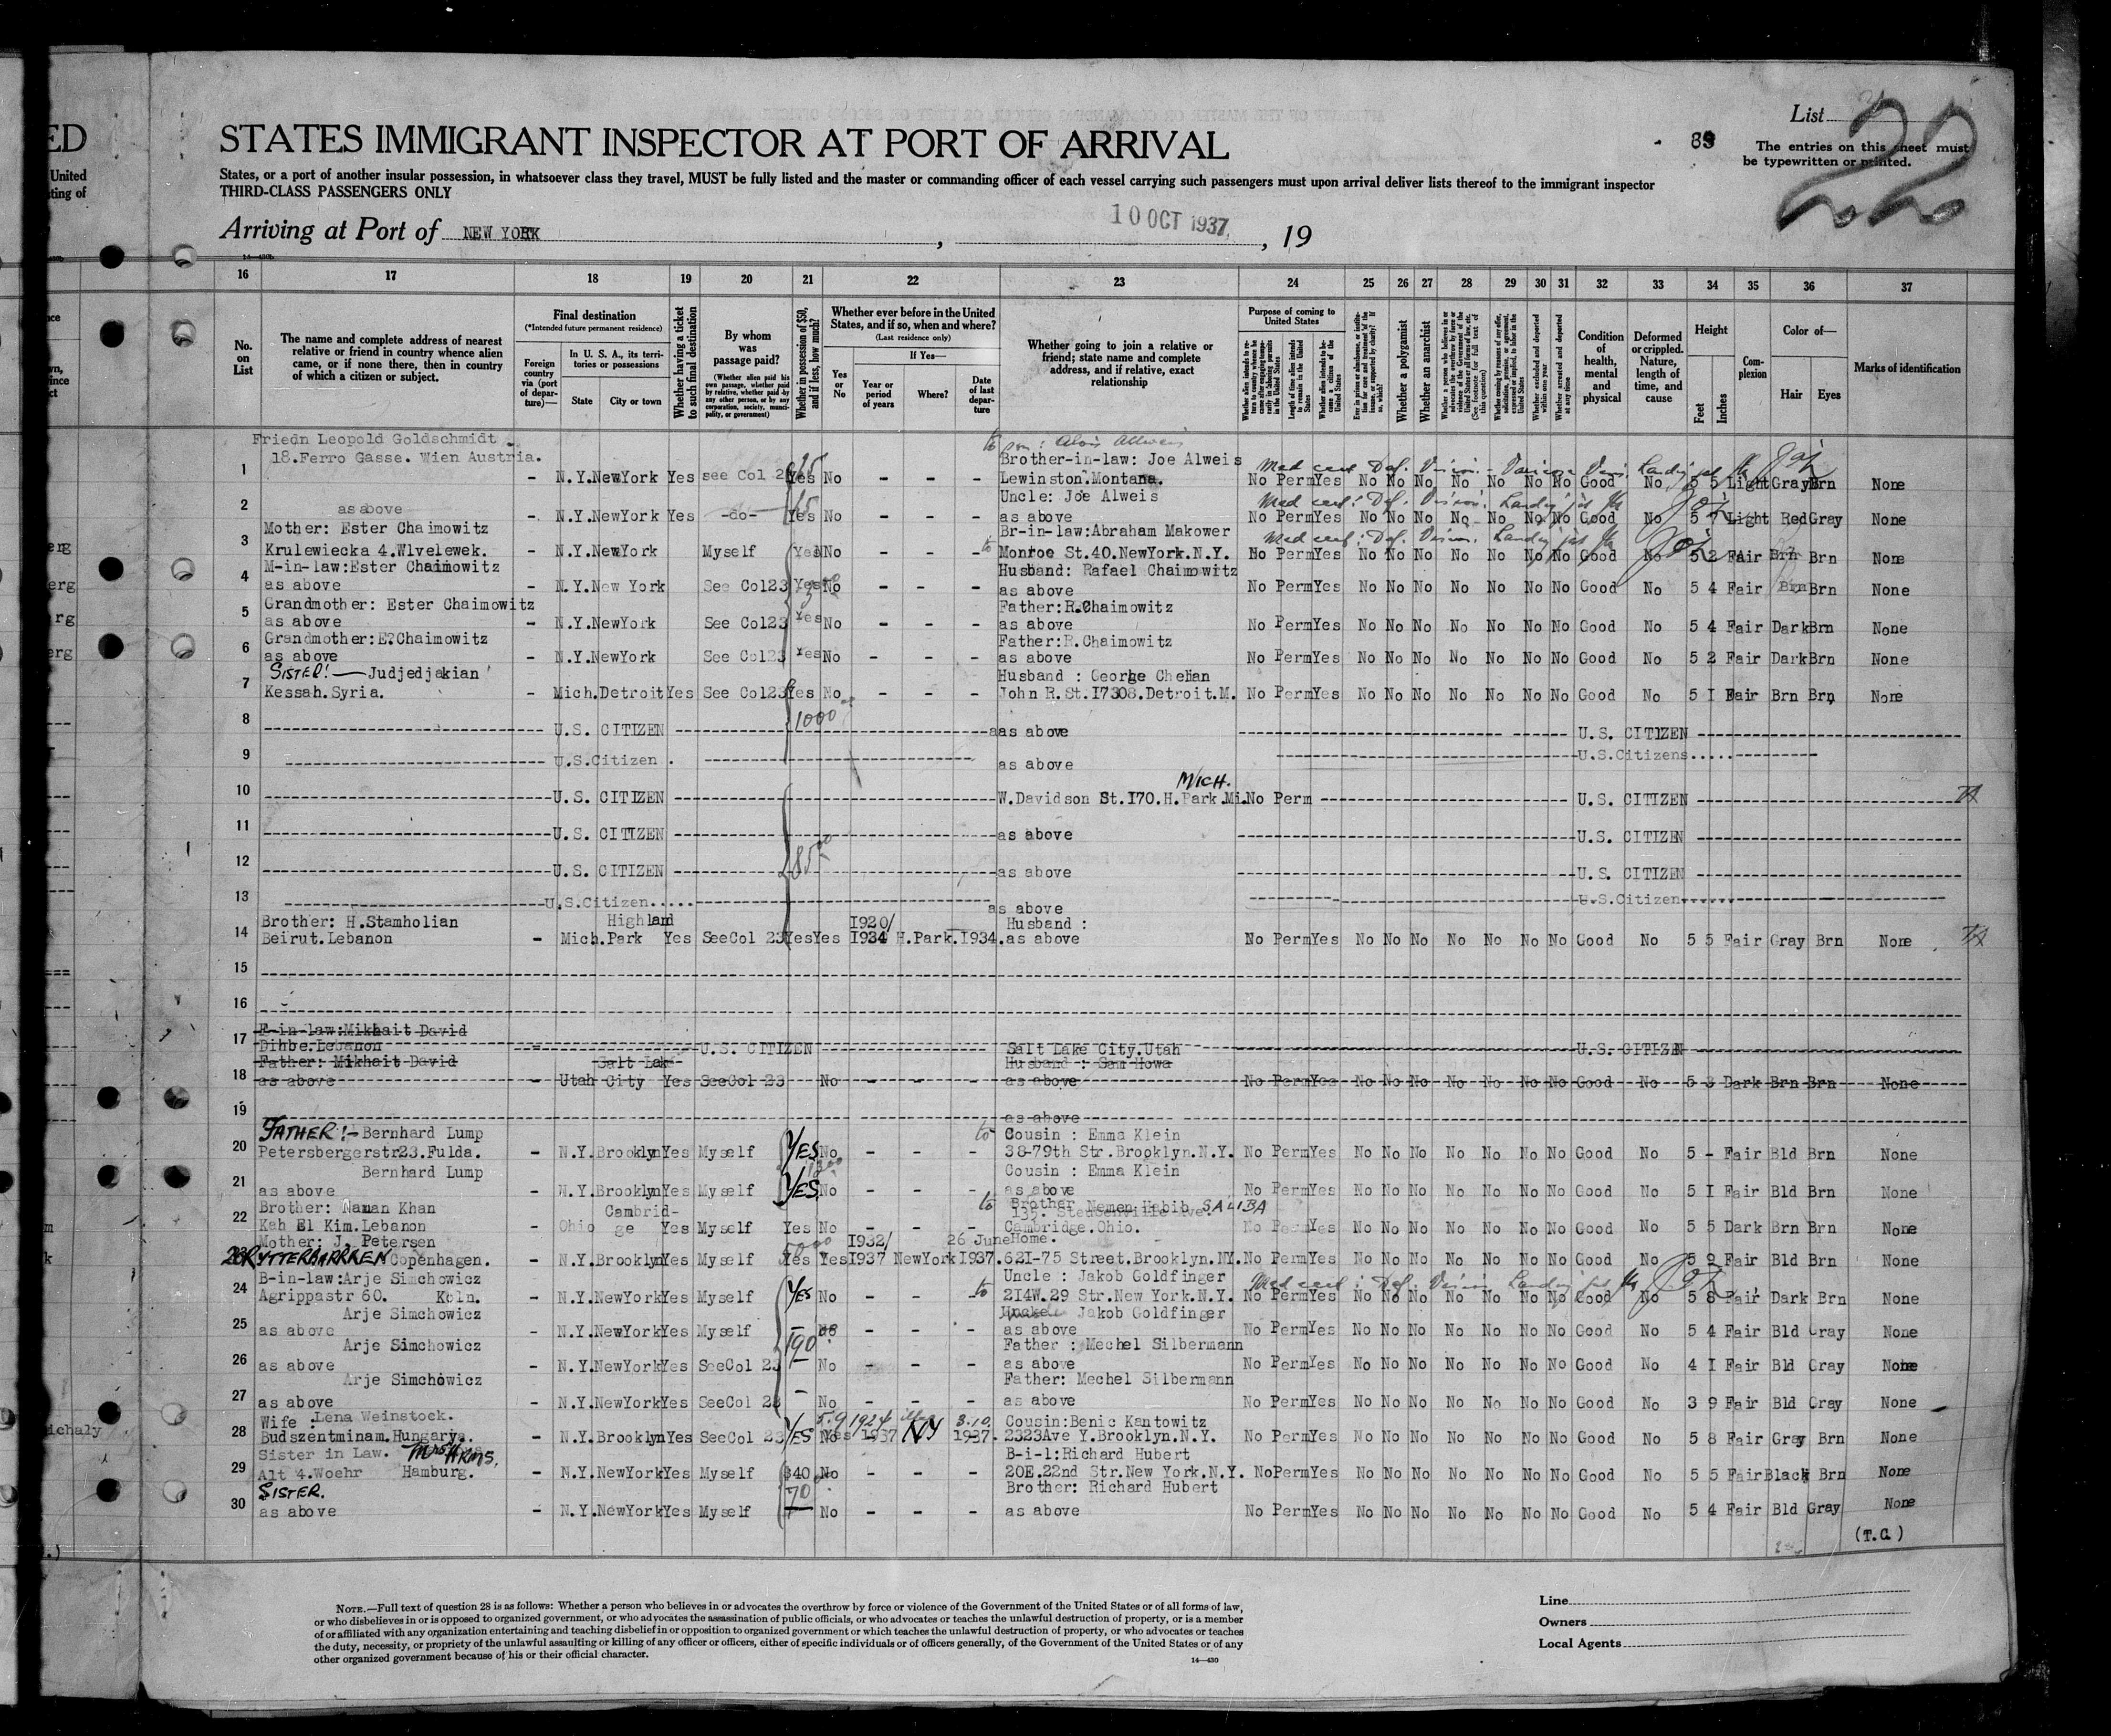 ED
United
ting of
STATES IMMIGRANT INSPECTOR AT PORT OF ARRIVAL
89
List
The entries on this sheet must
be typewritten or printed.
States, or a port of another insular possession, in whatsoever class they travel, MUST be fully listed and the master or commanding officer of each vessel carrying such passengers must upon arrival deliver lists thereof to the immigrant inspector
THIRD-CLASS PASSENGERS ONLY
Arriving at Port of NEW YORK , 10 OCT 1937 , 19
16 17 18 19 20 21 22 23 24 25 26 27 28 29 30 31 32 33 34 35 36 37
No. on List
The name and complete address of nearest relative or friend in country whence alien came, or if none there, then in country of which a citizen or subject.
Final destination
(*Intended future permanent residence)
Foreign country via (port of departure)—
In U. S. A., its territories or possessions
State
City or town
Whether having a ticket to such final destination
By whom was passage paid?
(Whether alien paid his own passage, whether paid by relative, whether paid by any other person, or by any corporation, society, municipality, or government)
Whether in possession of $50, and if less, how much?
Whether ever before in the United States, and if so, when and where?
(Last residence only)
Yes or No
If Yes—
Year or period of years
Where?
Date of last departure
Whether going to join a relative or friend; state name and complete address, and if relative, exact relationship
Purpose of coming to United States
Whether a polygamist
Whether an anarchist
Condition of health, mental and physical
Deformed or crippled. Nature, length of time, and cause
Height
Feet
Inches
Complexion
Color of—
Hair
Eyes
Marks of identification
Friedn Leopold Goldschmidt
18.Ferro Gasse. Wien Austria.
Brother-in-law: Joe Alweis
1 - N.Y. NewYork Yes see Col 2 Yes No - - - Lewinston.Montana. No Perm Yes No No No No No No No Good No 5 5 Light Gray Brn None
Uncle: Joe Alweis
2 as above - N.Y. NewYork Yes -do- Yes No - - - as above No Perm Yes No No No No No No No Good No 5 7 Light Red Gray None
Mother: Ester Chaimowitz Br-in-law:Abraham Makower
3 Krulewiecka 4.Wlvelewek. - N.Y. NewYork Myself Yes No - - - Monroe St.40.NewYork.N.Y. No Perm Yes No No No No No No No Good No 5 2 Fair Brn Brn None
M-in-law:Ester Chaimowitz Husband: Rafael Chaimowitz
4 as above - N.Y. New York See Col23 Yes No - - - as above No Perm Yes No No No No No No No Good No 5 4 Fair Brn Brn None
Grandmother: Ester Chaimowitz Father:R.Chaimowitz
5 as above - N.Y. NewYork See Col23 Yes No - - - as above No Perm Yes No No No No No No No Good No 5 4 Fair Dark Brn None
Grandmother:E?Chaimowitz Father:R.Chaimowitz
6 as above - N.Y. NewYork See Col23 Yes No - - - as above No Perm Yes No No No No No No No Good No 5 2 Fair Dark Brn None
SISTER! — Judjedjakian Husband : George Chelian
7 Kessah.Syria. - Mich. Detroit Yes See Col23 Yes No - - - John R.St.I7308.Detroit.M. No Perm Yes No No No No No No No Good No 5 I Fair Brn Brn None
8 U.S. CITIZEN 1000 as above U.S. CITIZEN
9 U.S.Citizen . as above U.S.Citizens.....
MICH.
10 U.S. CITIZEN W.Davidson St.I70.H.Park.Mi. No Perm U.S. CITIZEN
11 U.S. CITIZEN as above U.S. CITIZEN
12 U.S. CITIZEN 85 as above U.S. CITIZEN
13 U.S.Citizen..... as above U.S.Citizen
Brother: H.Stamholian Highland I920/ Husband :
14 Beirut.Lebanon - Mich. Park Yes SeeCol 23 Yes Yes I934 H.Park. I934. as above No Perm Yes No No No No No No No Good No 5 5 Fair Gray Brn None
15
16
F-in-law:Mikhait David
17 Dihbe.Lebanon U.S. CITIZEN Salt Lake City.Utah U.S. CITIZEN
Father: Mikhait David Salt Lak Husband : Sam Howa
18 as above - Utah City Yes SeeCol 23 No - - - as above No Perm Yes No No No No No No No Good No 5 3 Dark Brn Brn None
19 as above
FATHER!- Bernhard Lump Cousin : Emma Klein
20 Petersbergerstr23.Fulda. - N.Y. Brooklyn Yes Myself YES No - - - 38-79th Str.Brooklyn.N.Y. No Perm Yes No No No No No No No Good No 5 - Fair Bld Brn None
Bernhard Lump Cousin : Emma Klein
21 as above - N.Y. Brooklyn Yes Myself YES No - - - as above No Perm Yes No No No No No No No Good No 5 I Fair Bld Brn None
Brother: Naman Khan Cambrid- Brother Nemen Habib SALIBA
135. Steubenville Ave.
22 Kah El Kim.Lebanon - Ohio ge Yes Myself Yes No - - - Cambridge.Ohio. No Perm Yes No No No No No No No Good No 5 5 Dark Brn Brn None
Mother: J. Petersen I932/ 26 June Home.
23 RYTTERBARRREN Copenhagen. - N.Y. Brooklyn Yes Myself Yes Yes I937 NewYork I937. 62I-75 Street.Brooklyn.NY. No Perm Yes No No No No No No No Good No 5 2 Fair Bld Brn None
B-in-law:Arje Simchowicz Uncle : Jakob Goldfinger
24 Agrippastr 60. Köln. - N.Y. NewYork Yes Myself YES No - - - 2I4W.29 Str.New York.N.Y. No Perm Yes No No No No No No No Good No 5 8 Fair Dark Brn None
Arje Simchowicz Jakob Goldfinger
25 as above - N.Y. NewYork Yes Myself - - - - as above No Perm Yes No No No No No No No Good No 5 4 Fair Bld Gray None
Arje Simchowicz 190 Father : Mechel Silbermann
26 as above - N.Y. NewYork Yes SeeCol 23 - No - - - as above No Perm Yes No No No No No No No Good No 4 I Fair Bld Gray None
Arje Simchowicz Father: Mechel Silbermann
27 as above - N.Y. NewYork Yes SeeCol 23 - No - - - as above No Perm Yes No No No No No No No Good No 3 9 Fair Bld Gray None
Wife :Lena Weinstock. 1924 3.10. Cousin:Benic Kantowitz
28 Budszentminam.Hungary. - N.Y. Brooklyn Yes SeeCol 23 YES Yes 1937 NY 1937. 2323Ave Y.Brooklyn.N.Y. No Perm Yes No No No No No No No Good No 5 8 Fair Gray Brn None
Sister in Law. Mrs HRMS. B-i-l:Richard Hubert
29 Alt 4.Woehr Hamburg. - N.Y. NewYork Yes Myself $40 No - - - 20E.22nd Str.New York.N.Y. No Perm Yes No No No No No No No Good No 5 5 Fair Black Brn None
SISTER. 70 Brother: Richard Hubert
30 as above - N.Y. NewYork Yes Myself No - - - as above No Perm Yes No No No No No No No Good No 5 4 Fair Bld Gray None
(T.C.)
NOTE.—Full text of question 28 is as follows: Whether a person who believes in or advocates the overthrow by force or violence of the Government of the United States or of all forms of law,
or who disbelieves in or is opposed to organized government, or who advocates the assassination of public officials, or who advocates or teaches the unlawful destruction of property, or is a member
of or affiliated with any organization entertaining and teaching disbelief in or opposition to organized government or which teaches the unlawful destruction of property, or who advocates or teaches
the duty, necessity, or propriety of the unlawful assaulting or killing of any officer or officers, either of specific individuals or of officers generally, of the Government of the United States or of any
other organized government because of his or their official character.
14—430
Line
Owners
Local Agents